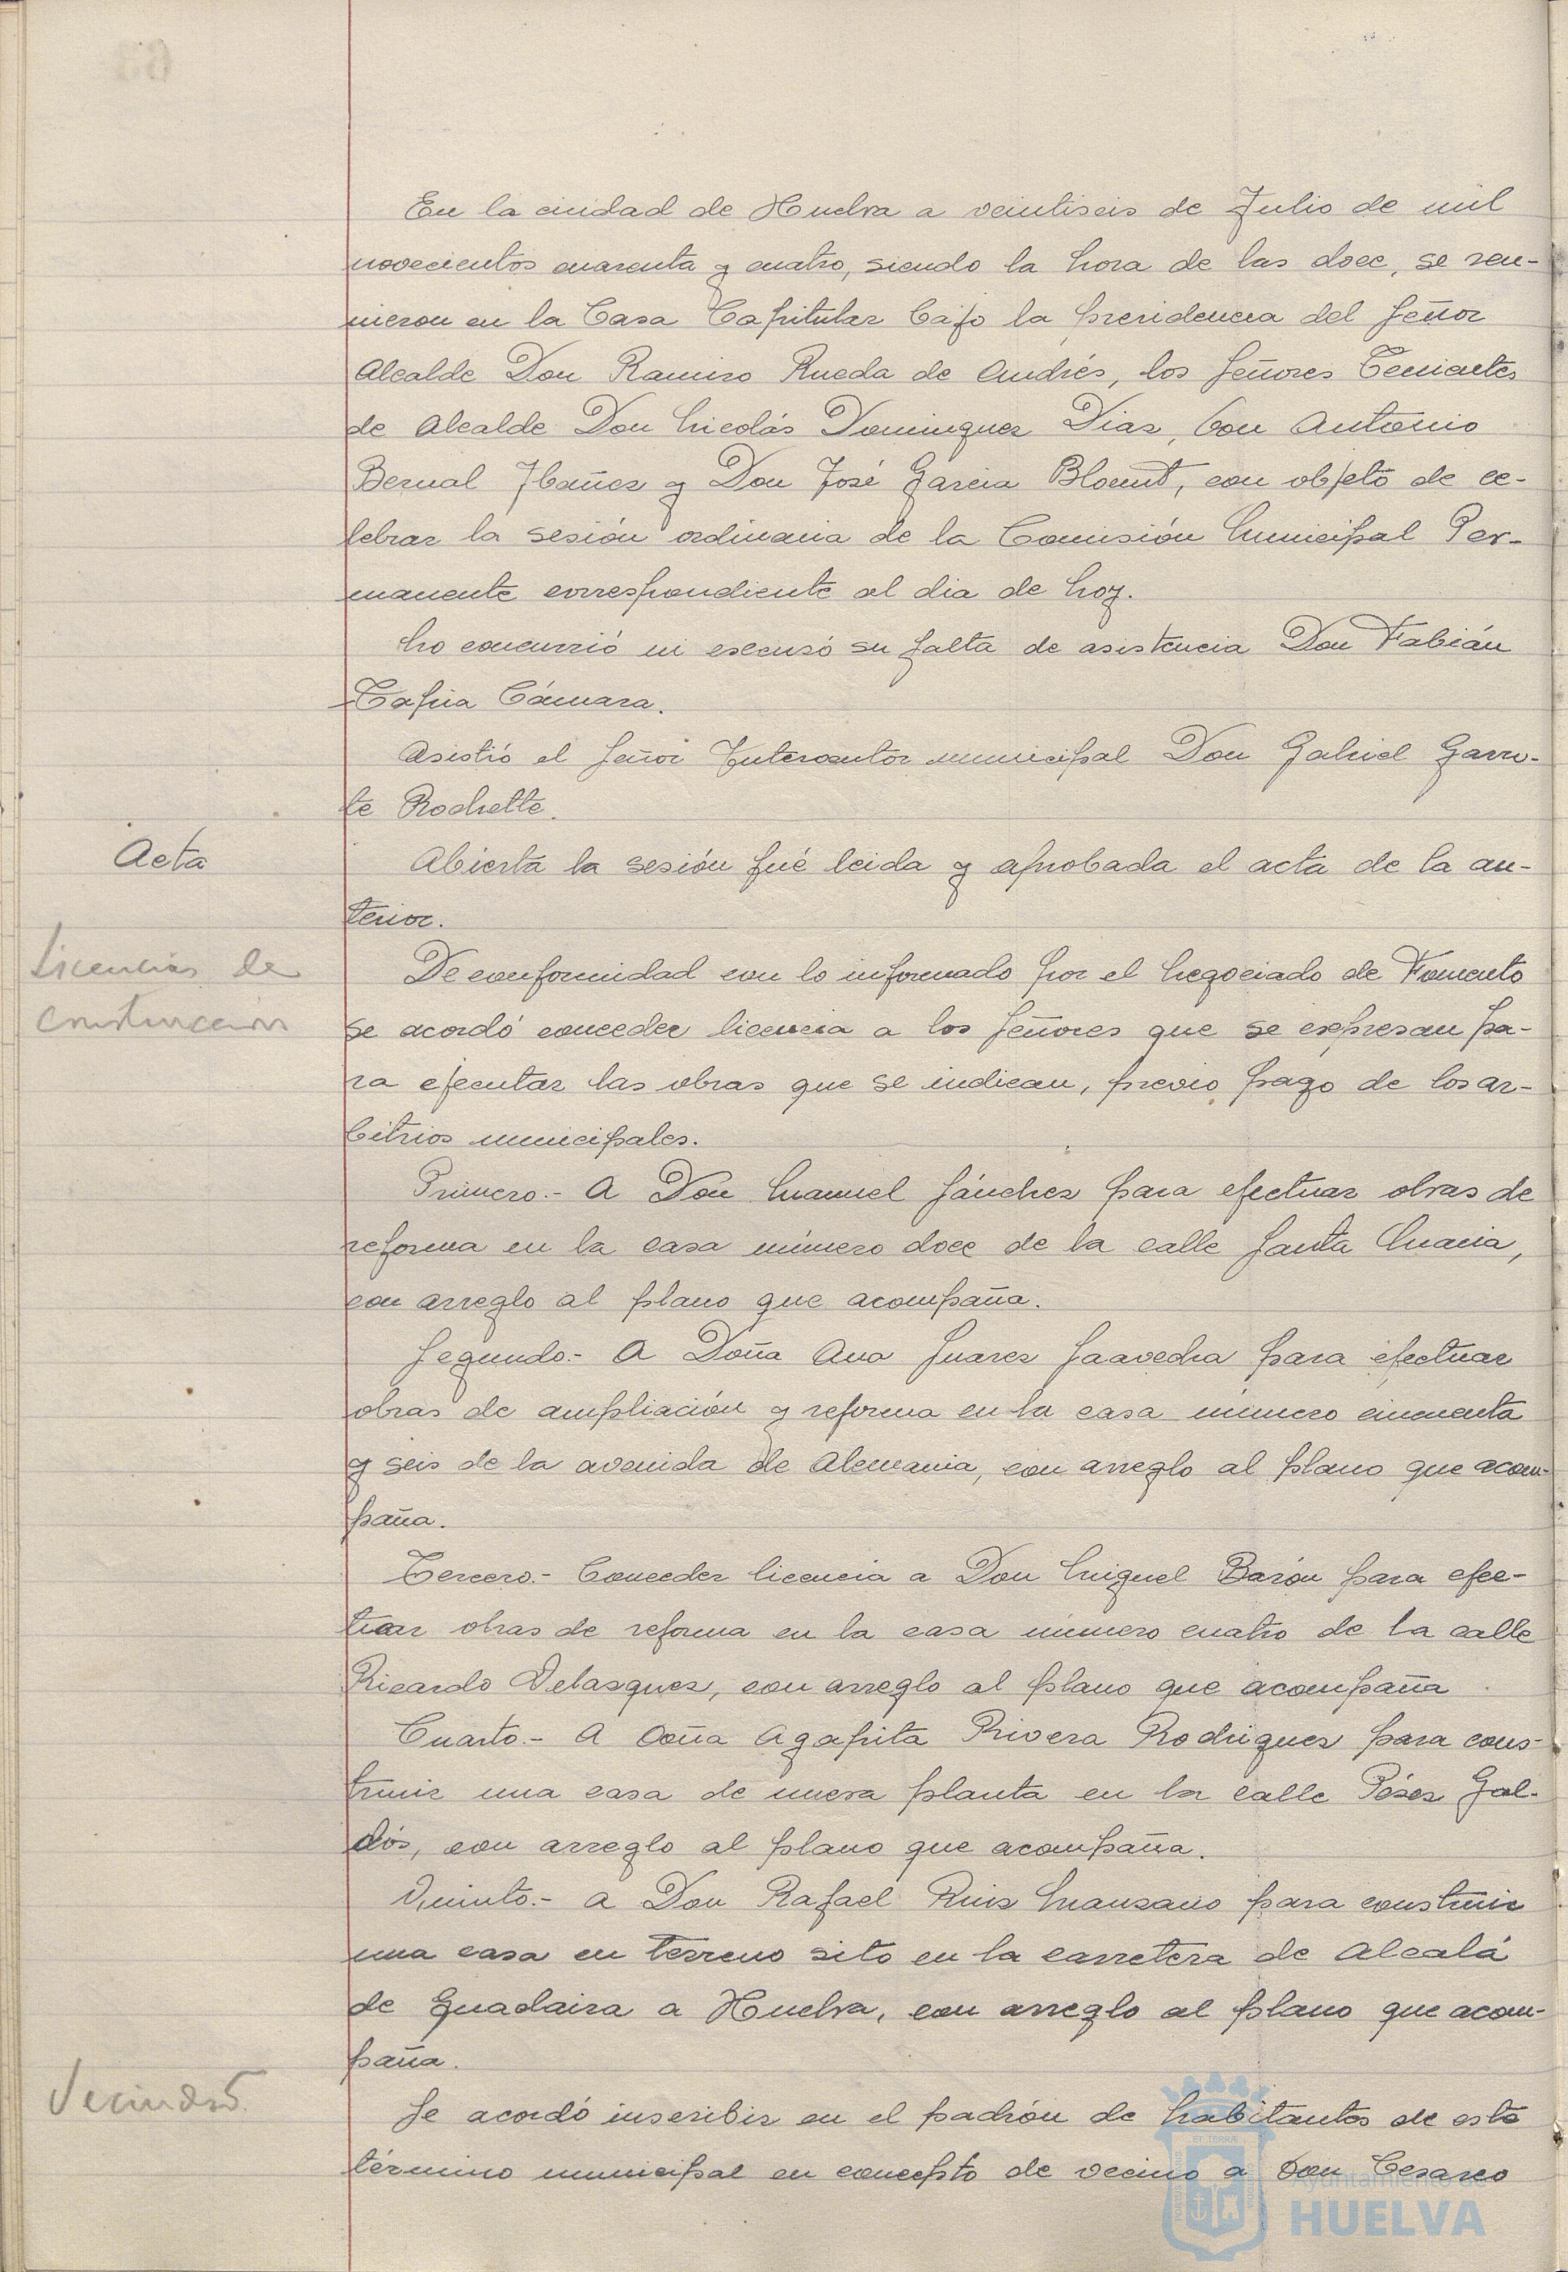 En la ciudad de Huelva a veintiseis de Julio de mil
novecientos cuarenta y cuatro, siendo la hora de las doce, se reu-
nieron en la Casa Capitular bajo la presidencia del Señor
Alcalde Don Ramiro Rueda de Andrés, los Señores Tenientes
de Alcalde Don Nicolás Dominguez Diaz, Don Antonio
Bernal Ibañez y Don José Garcia Blount, con objeto de ce-
lebrar la sesión ordinaria de la Comisión Municipal Per-
manente correspondiente al dia de hoy.
No concurrió ni escusó su falta de asistencia Don Fabián
Tapia Cámara.
Asistió el Señor Interventor municipal Don Gabriel Garro-
te Rochette.
Acta
Abierta la sesión fué leida y aprobada el acta de la an-
terior.
Licencias de
construcción
De conformidad con lo informado por el Negociado de Fomento
se acordó conceder licencia a los Señores que se expresan pa-
ra ejecutar las obras que se indican, previo pago de los ar-
bitrios municipales.
Primero.- A Don Manuel Sánchez para efectuar obras de
reforma en la casa número doce de la calle Santa Maria,
con arreglo al plano que acompaña.
Segundo.- A Doña Ana Suarez Saavedra para efectuar
obras de ampliación y reforma en la casa número cincuenta
y seis de la avenida de Alemania, con arreglo al plano que acom-
paña.
Tercero.- Conceder licencia a Don Miguel Barón para efec-
tuar obras de reforma en la casa número cuatro de la calle
Ricardo Velazquez, con arreglo al plano que acompaña
Cuarto.- A Doña Agapita Rivera Rodriguez para cons-
truir una casa de nueva planta en la calle Pérez Gal-
dós, con arreglo al plano que acompaña.
Quinto.- a Don Rafael Ruiz Manzano para construir
una casa en terreno sito en la carretera de Alcalá
de Guadaira a Huelva, con arreglo al plano que acom-
paña.
Vecindad.
Se acordó inscribir en el padrón de habitantes de este
término municipal en concepto de vecino a Don Cesareo
Ayuntamiento de
HUELVA